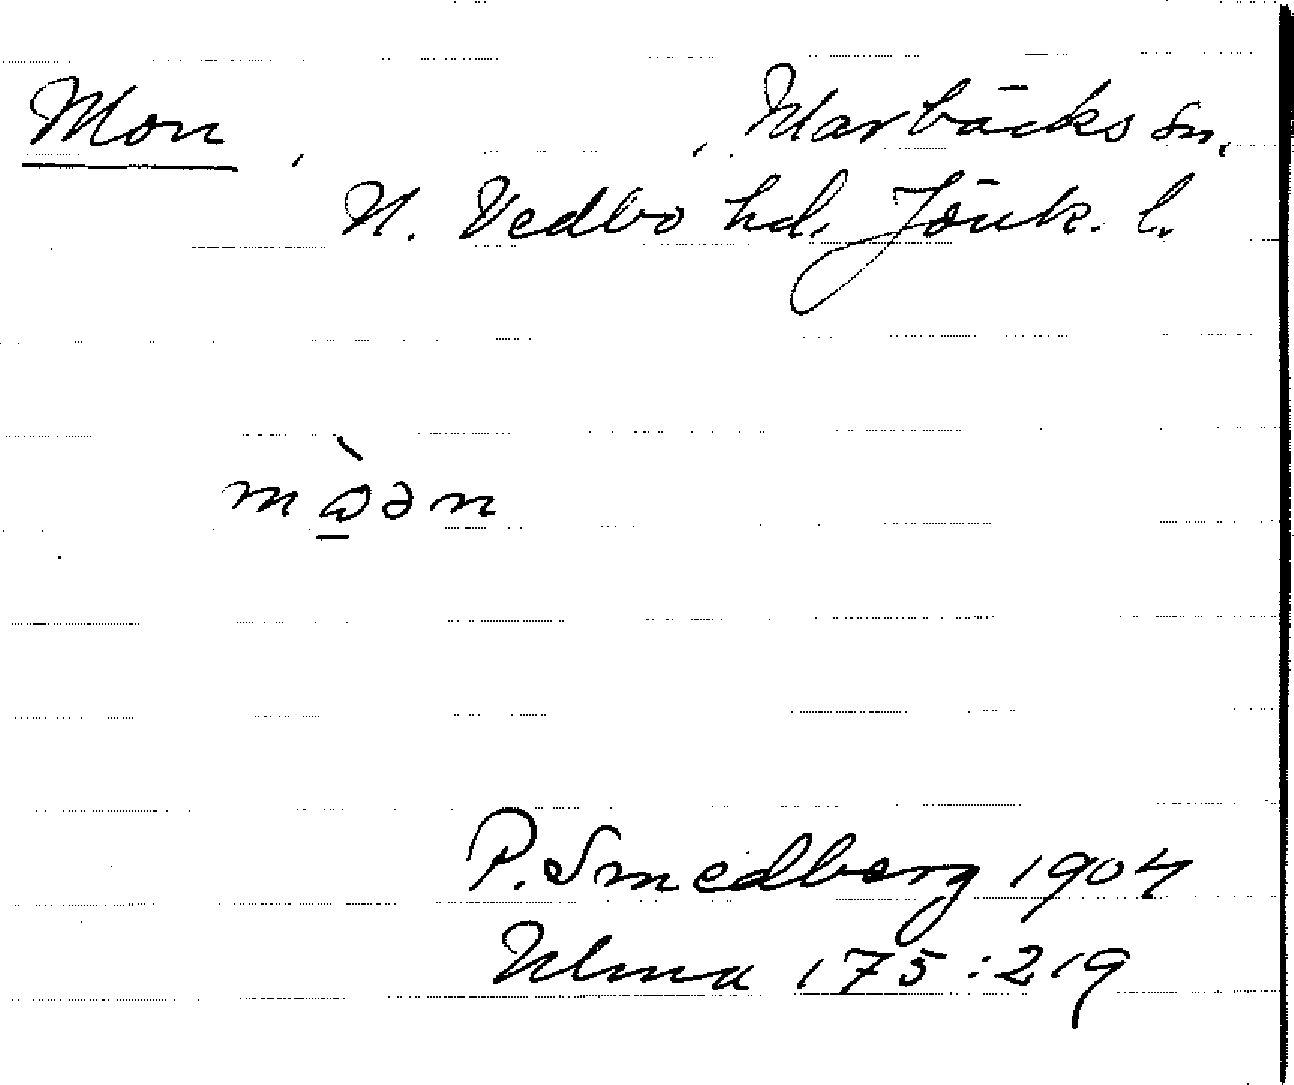 Mon , , Marbäcks sn.
N. Vedbo hd. Jönk. l.
mòən
P. Smedberg 1904
Ulma 175:219